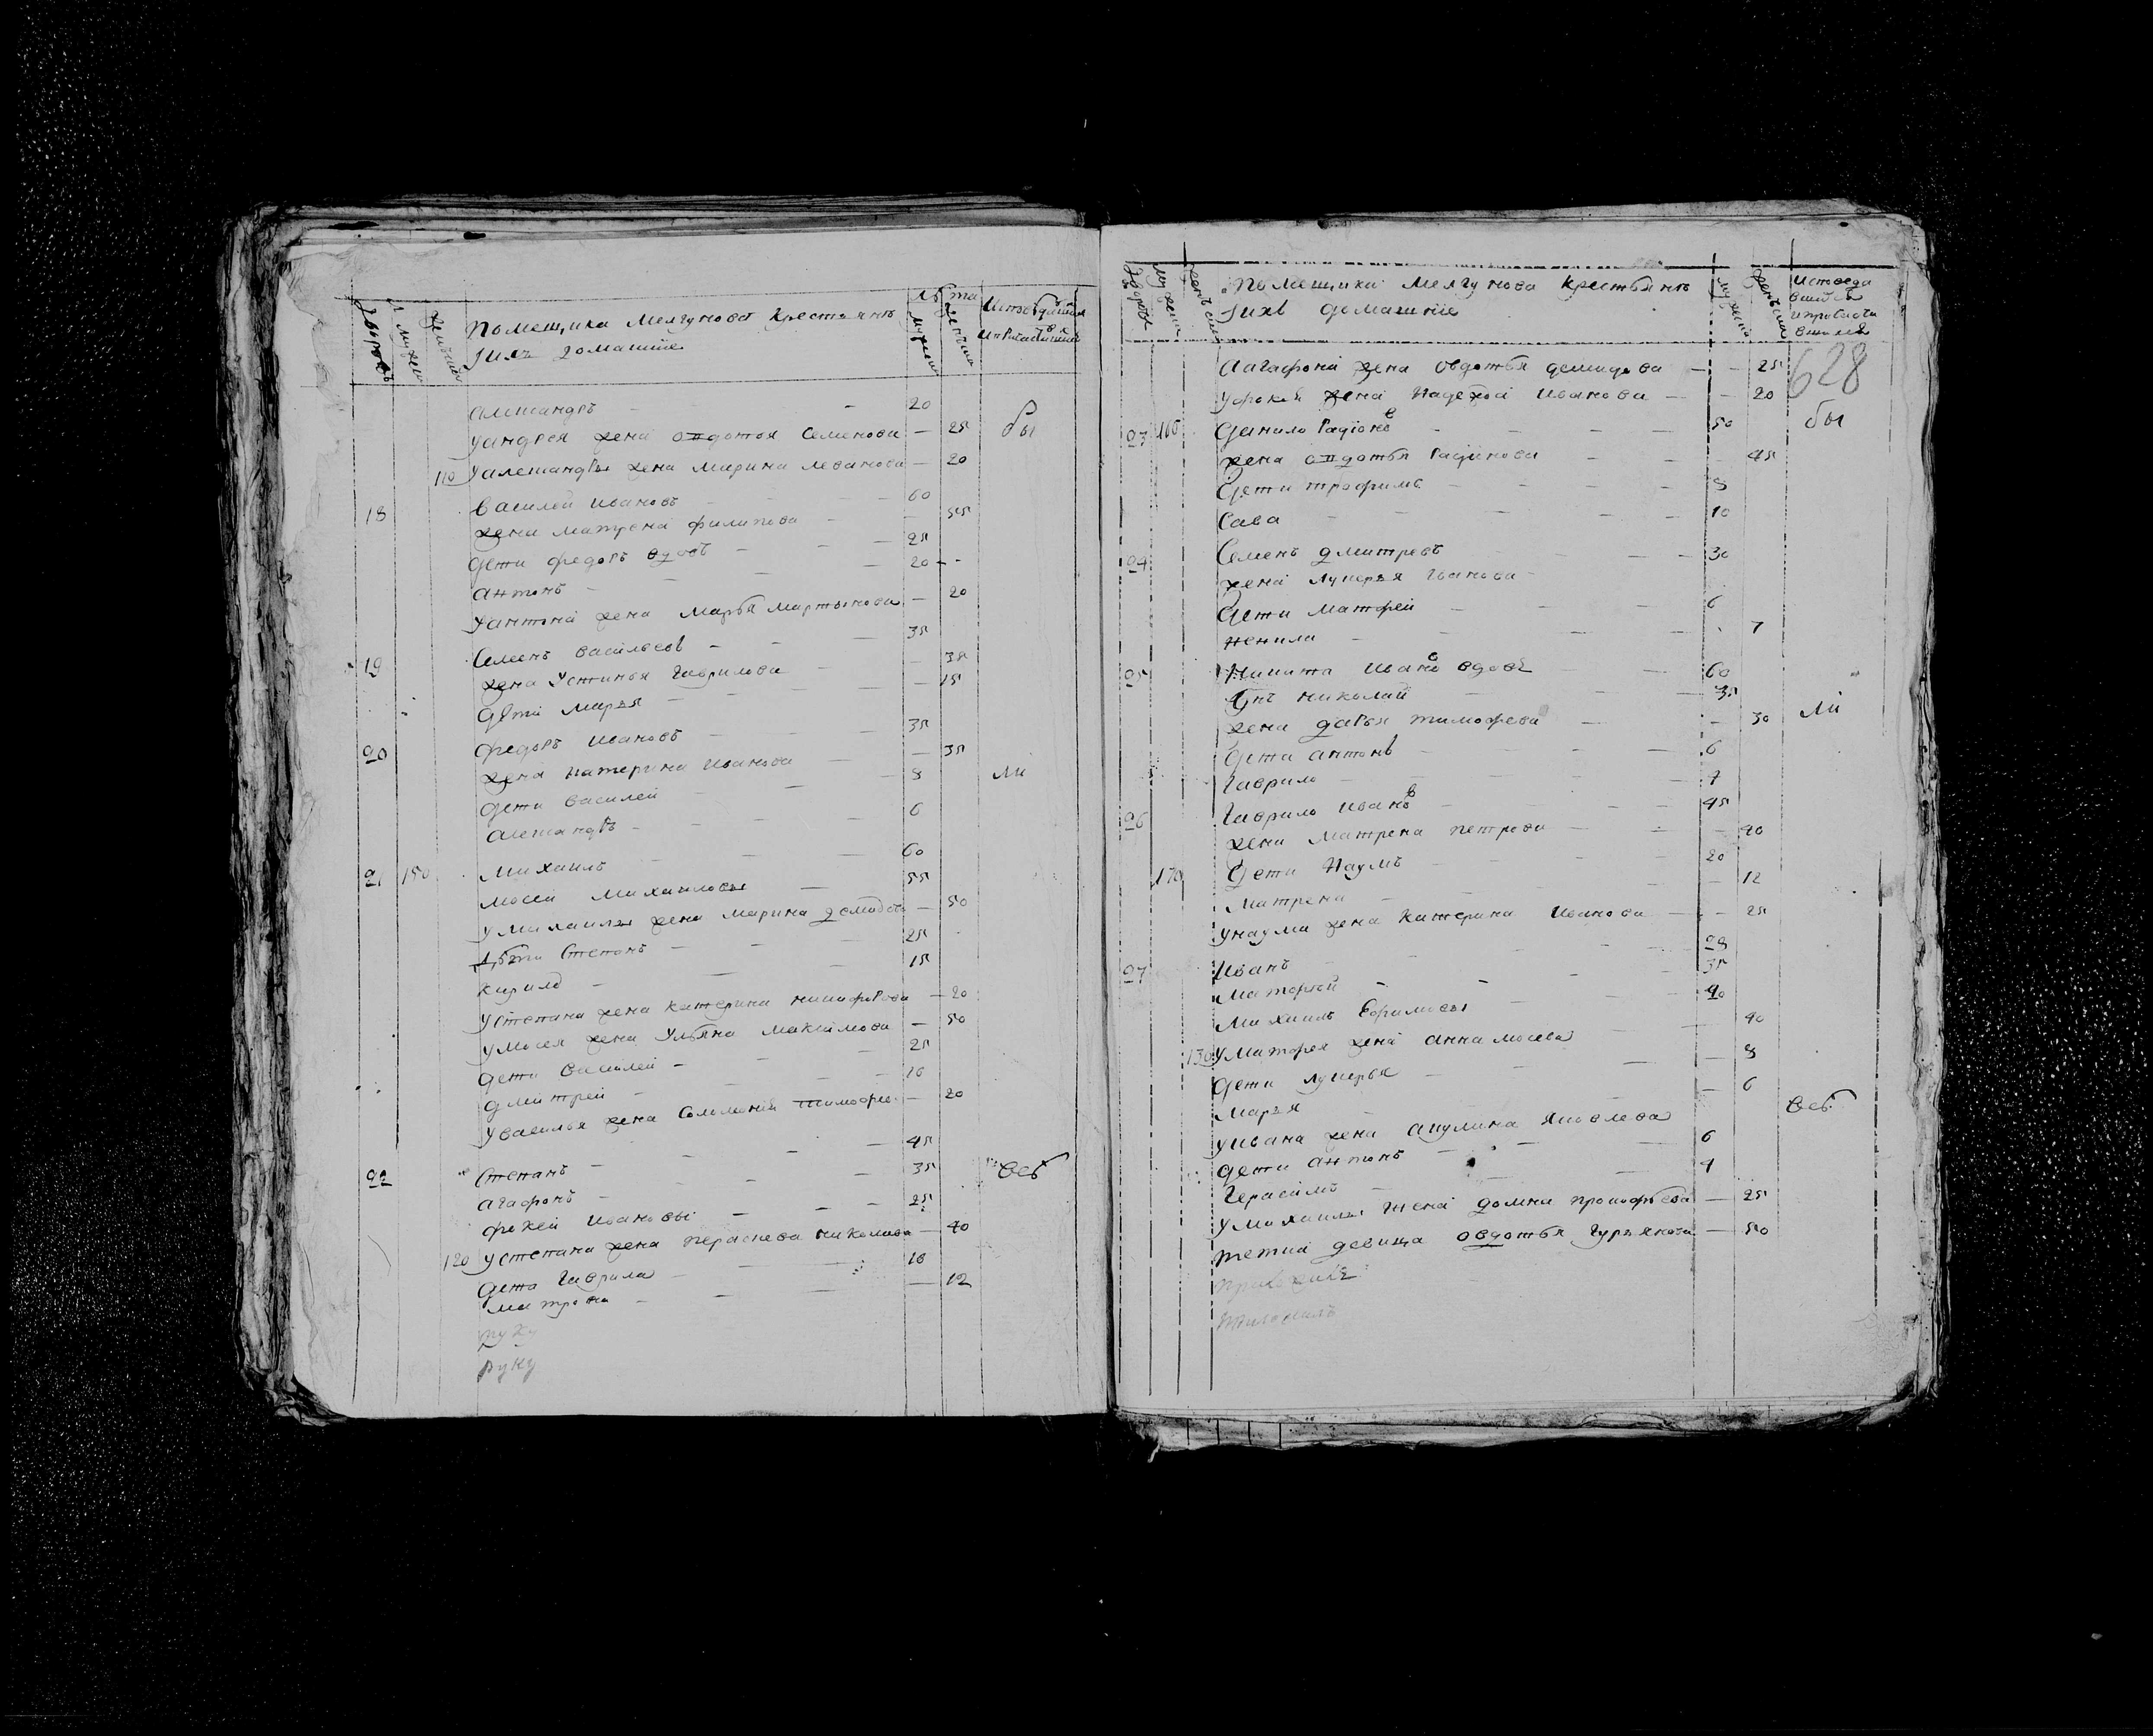 дворовъ
мужеск
женска
Помещика Мелгунова крестьянъ
Iихъ домашние
лѣта
мужеск
женска
алеѯандръ 20
Уандрея жена овдотья Семенова 25 бы
110 Уалеѯандры жена Марина леванова 20
18 Василей Ивановъ 60
жена матрена филипова 55
дети федоръ вдовъ 25
антонъ 20
Уантона жена Марья Мартынова 20
19 Семенъ васильевъ 35
жена Устинья Гаврилова 35
дети Марья 15
20 федоръ Ивановъ 35
жена Катерина Иванова 35
дети василей 8 ли
алеѯандръ 6
21 150 Михаилъ 60
Мосей Михаиловы 55
У Михаилы жена Марина демидова 50
дѣти Степанъ 25
Кирило 15
Устепана жена катерина никифорова 20
Умосея жена Ульяна Маѯимова 50
дети василей 25
дмитрей 16
Увасилья жена Соломонія тимофее 20
22 Степанъ 45
агафонъ 35 всѣ
фокей Ивановы 25
120 Устепана жена перасковя николаева 40
дети Гаврила 16
матрона 12
руку
руку
дворовъ
мужеска
женъска
Помещика Мелгунова крестьянъ
Iихъ домашние
мужеска
женъска
Исповеда
628
Уагафона жена овдотья демидова 25
Уфокея жена Надежда Иванова 20
23 160 Данило Радіоновъ 50 бы
жена овдотья Радіонова 45
Дети трофимъ 8
Сава 10
24 Семенъ дмитревъ 30
жена лукерья Иванова
Дети Матфей 6
ненила 7
25 Никита Ивановъ вдовъ 60
Сынъ николай 35
жена дарья тимофеева 30 ли
дети антонъ 6
Гаврило 4
26 Гаврило Ивановъ 45
жена Матрена петрова 40
170 Дети Наумъ 20
Матрена 12
Унаума жена катерина Иванова 25
27 Иванъ 28
Матфей 35
Михаилъ Ефимовы 20
130 Уматфея жена анна мосеева 40
дети лукерья 8
Марья 6
Уивана жена акулина Яковлева всѣ
дети антонъ 6
Герасимъ 4
Умихаилы жена домна прокофьева 25
тетка девица овдотья Гурьянова 50